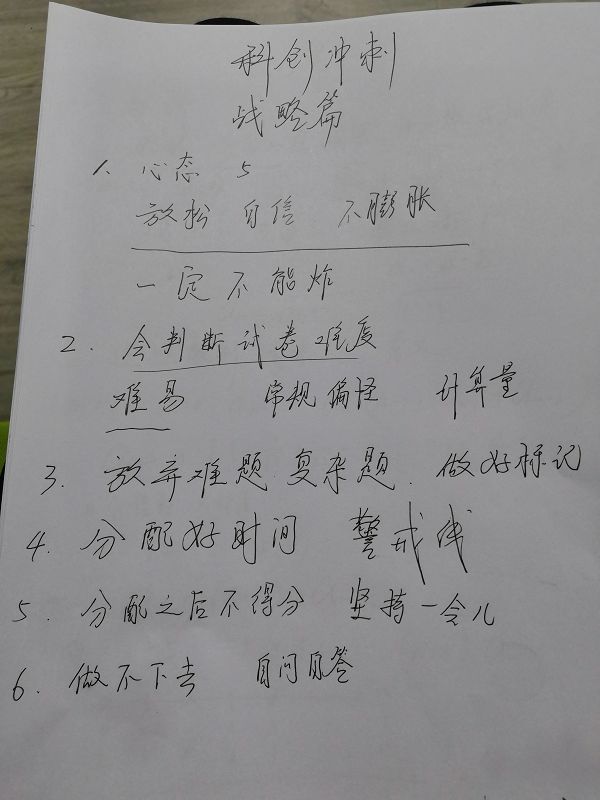 科创冲刺
战略篇
1. 心态 5
放松 自信 不膨胀
一定不能炸
2. 会判断试卷难度
难易 常规偏怪 计算量
3. 放弃难题.复杂题. 做好标记
4. 分配好时间 警戒线
5. 分配之后不得分 坚持一会儿
6. 做不下去 自问自答